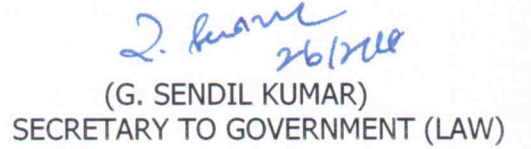 (G. SENDIL KUMAR)
SECRETARY TO GOVERNMENT (LAW)